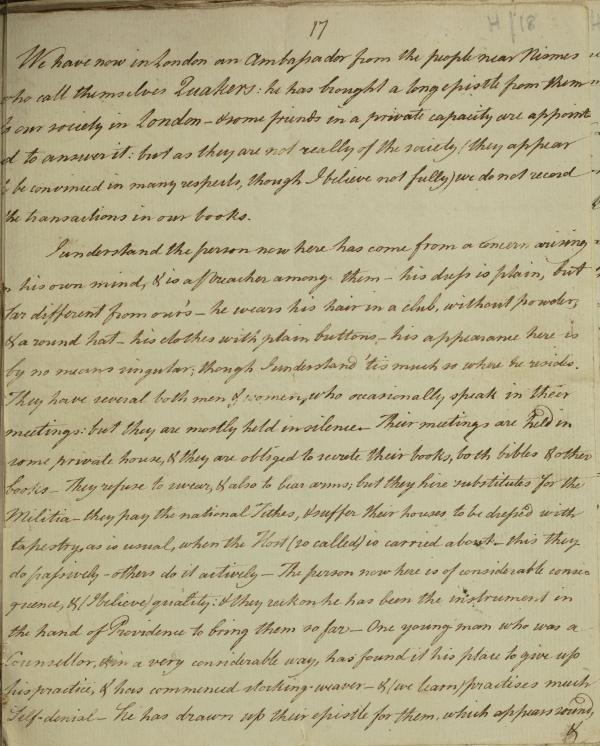 17
H/18
We have now in London an Ambassador from the people near Nismes
who call themselves Quakers: he has brought a long epistle from them
to our society in London – & some friends in a private capacity are appoint
ed to answer it: but as they are not really of the society (they appear
to be convinced in many respects, though I believe not fully) we do not record
the transactions in our books.
I understand the person now here has come from a concern arising
in his own mind, & is a preacher among them – his dress is plain, but
far different from our's – he wears his hair in a club, without powder,
& a round hat – his clothes with plain buttons – his appearance here is
by no means singular; though I understand 'tis much so where he resides.
They have several both men & women, who occasionally speak in their
meetings: but they are mostly held in silence – Their meetings are held in
some private house, & they are obliged to secrete their books, both bibles & other
books – They refuse to swear, & also to bear arms; but they hire substitutes for the
Militia – they pay the national Tithes, & suffer their houses to be dressed with
tapestry, as is usual, when the Host (so called) is carried about – this they
do passively – others do it actively – The person now here is of considerable conse
quence, & (I believe) quality; & they reckon he has been the instrument in
the hand of Providence to bring them so far – One young man who was a
Counsellor, & in a very considerable way, has found it his place to give up
his practice, & has commenced stocking-weaver – & (we learn) practises much
Self-denial – he has drawn up their epistle for them, which appears sound,
&